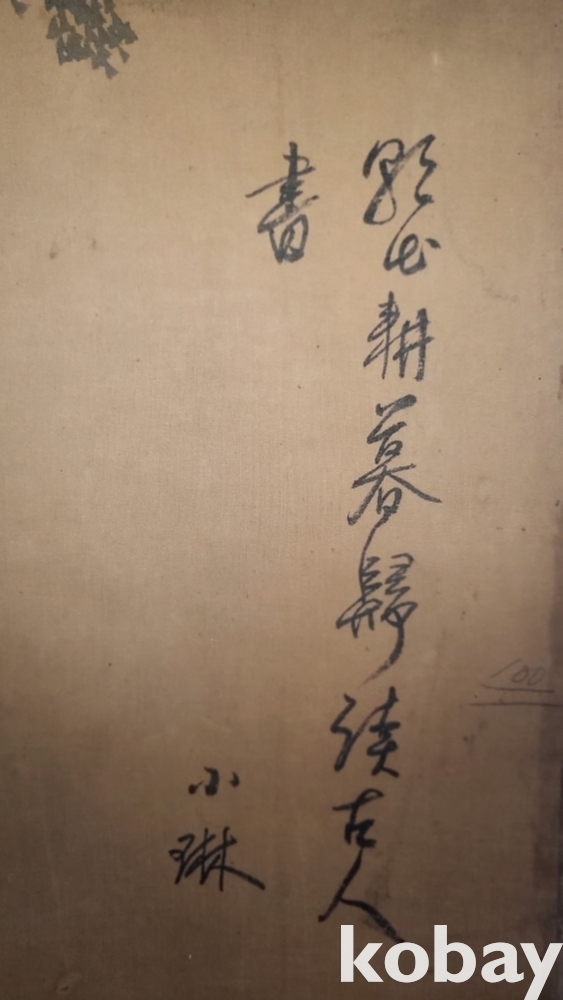 朝出耕暮歸讀古人
書
小琳
100
kobay